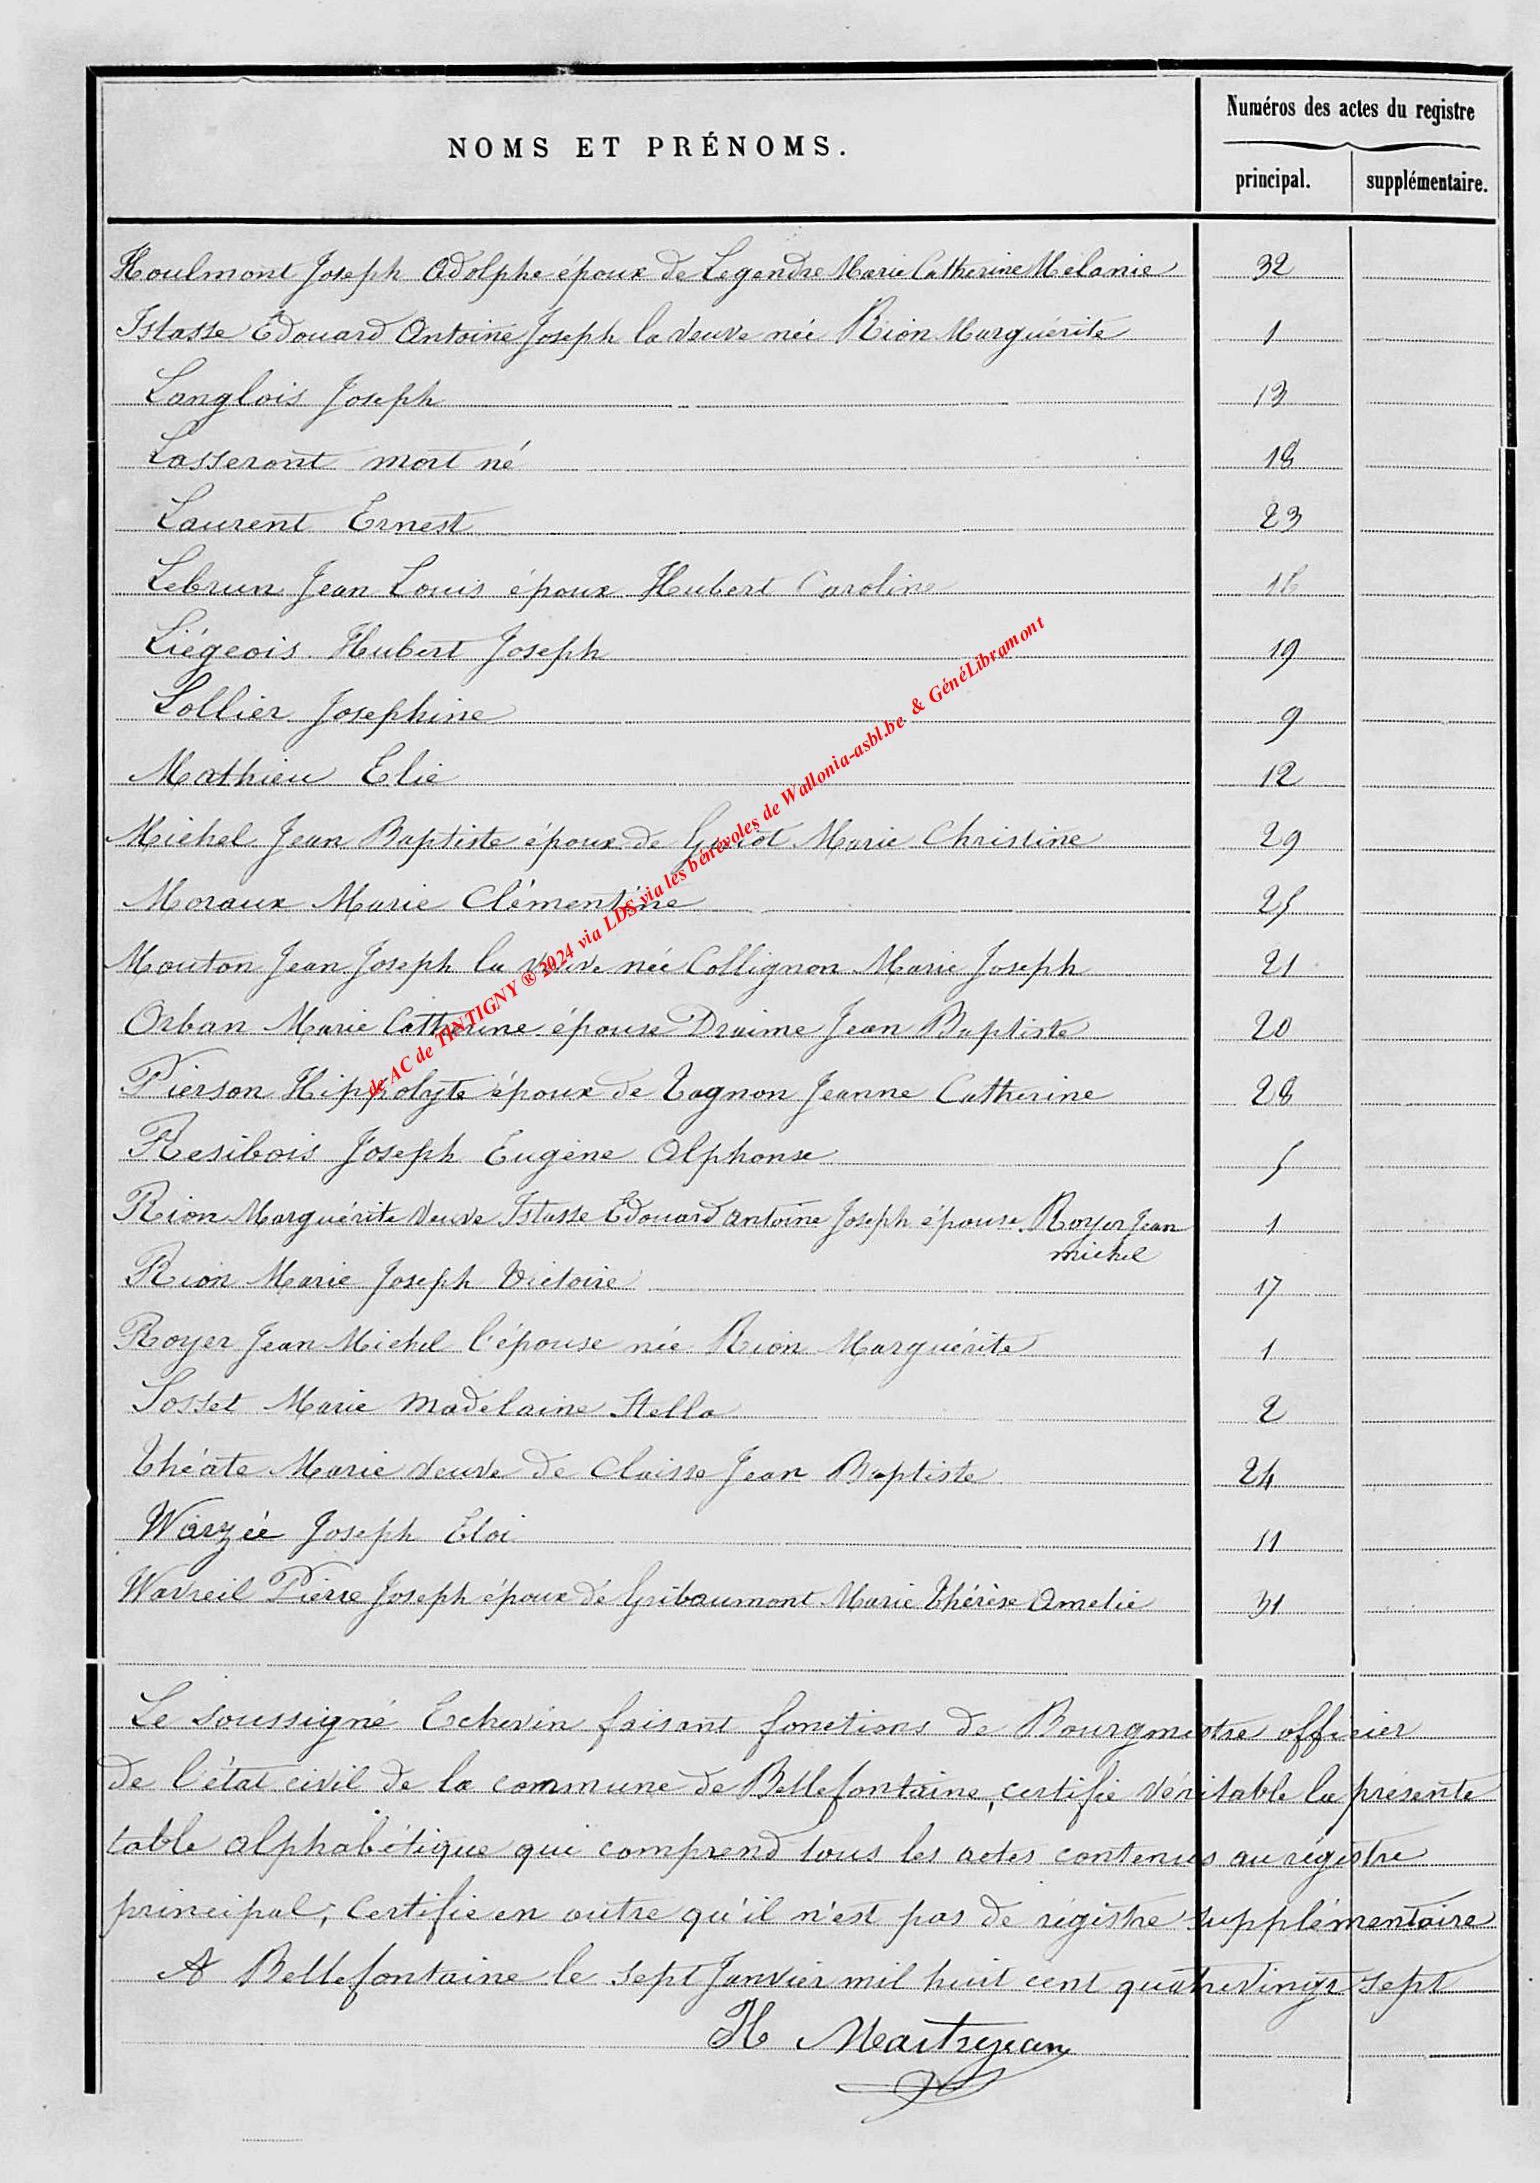 NOMS ET PRÉNOMS.
Numéros des actes du registre
principal. supplémentaire.
Houlmont Joseph Adolphe époux de Legendre Marie Catherine Melanie 32
Istasse Edouard Antoine Joseph la veuve née Rion Marguérite 1
Langlois Joseph 13
Lasseront mort né 18
Laurent Ernest 23
Lebrun Jean Louis époux Hubert Caroline 16
Liégeois Hubert Joseph 19
Lollier Josephine 9
Mathieu Elie 12
Michel Jean Baptiste époux de Guiot Marie Christine 29
Moraux Marie Clémentine 25
Mouton Jean Joseph la veuve née Collignon Marie Joseph 21
Orban Marie Catherine épouse Draime Jean Baptiste 20
Pierson Hippolyte époux de Tagnon Jeanne Catherine 28
Resibois Joseph Eugène Alphonse 5
Rion Marguérite veuve Istasse Edouard Antoine Joseph épouse Royer Jean 1
michel
Rion Marie Joseph Victoire 17
Royer Jean Michel l'épouse née Rion Marguérite 1
Sosset Marie Madelaine Stella 2
Théate Marie veuve de Claisse Jean Baptiste 24
Warzée Joseph Eloi 11
Wavreil Pierre Joseph époux de Gribaumont Marie Thérèse Amelie 31
Le soussigné Echevin faisant fonctions de Bourgmestre officier
de l'état civil de la commune de Bellefontaine, certifie véritable la présente
table alphabétique qui comprend tous les actes contenus au régistre
principal; Certifie en outre qu'il n'est pas de régistre supplémentaire
A Bellefontaine le sept Janvier mil huit cent quatrevingt sept
H Maitrejean
de AC de TINTIGNY ® 2024 via LDS via les bénévoles de Wallonia-asbl.be & GénéLibramont